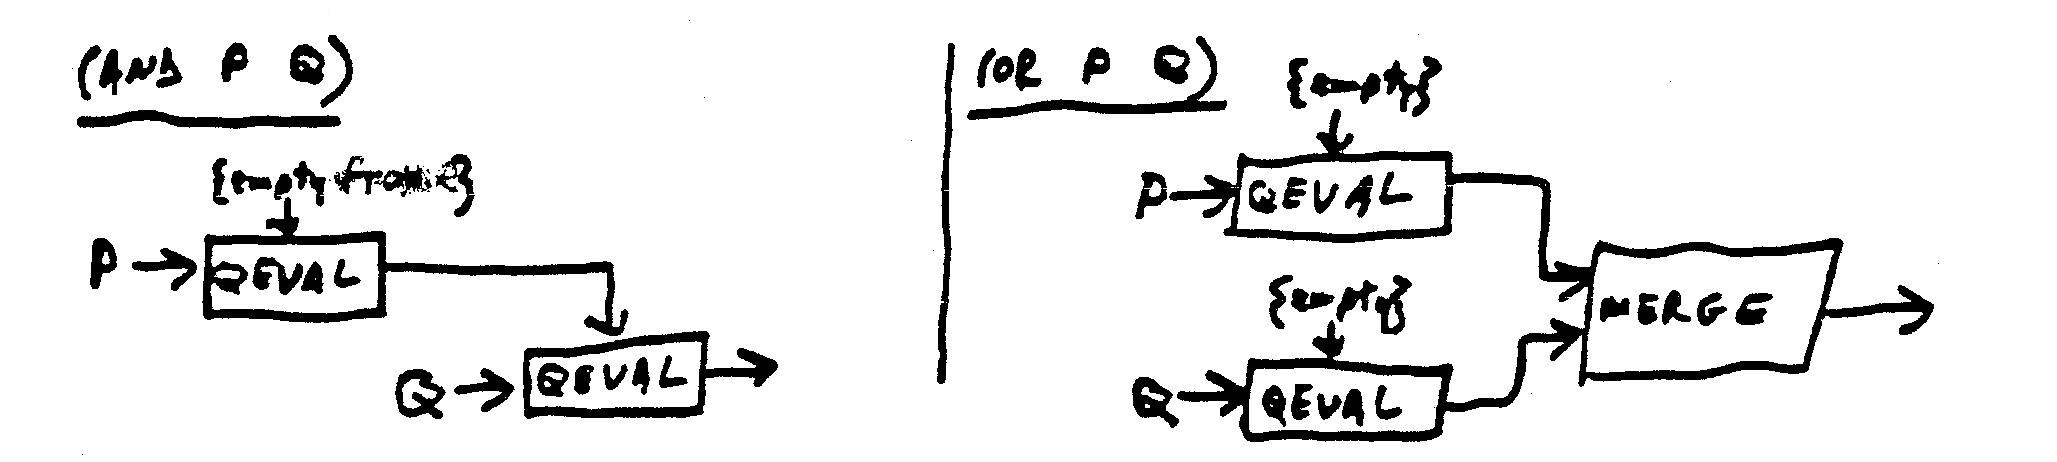 (AND P Q)
{empty frame}
P → QEVAL
Q → QEVAL →
(OR P Q)
{empty}
P → QEVAL
{empty}
Q → QEVAL
MERGE →